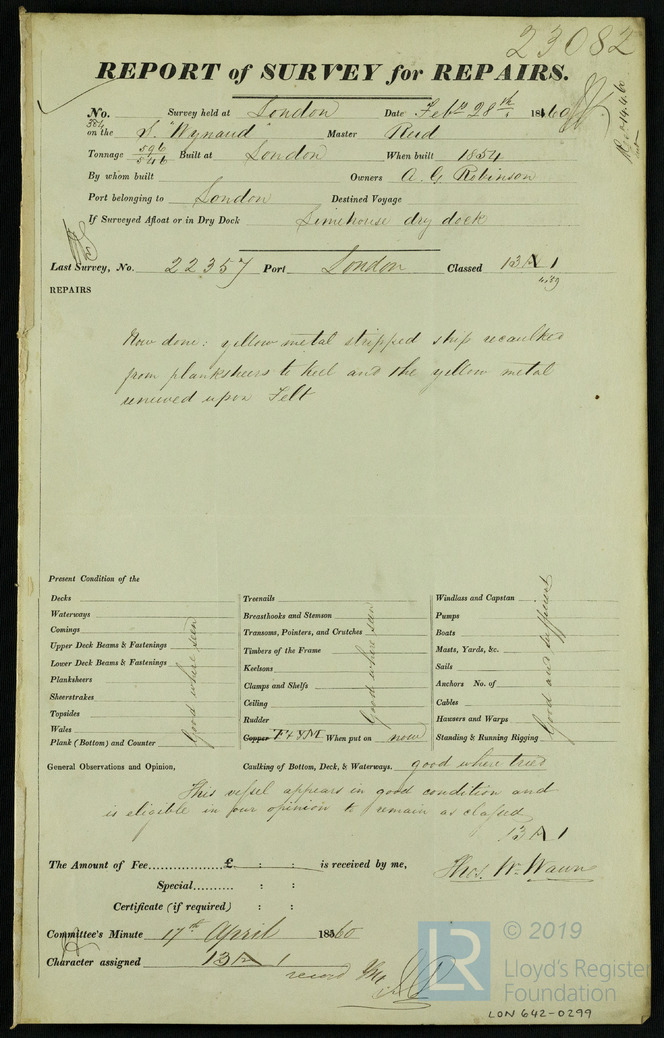 23082
REPORT of SURVEY for REPAIRS.
No. Survey held at London Date Feby 28th 1860
384 on the S. "Wynaud" Master Reid
Tonnage 596 546 Built at London When built 1854
By whom built Owners A. G. Robinson
Port belonging to London Destined Voyage
If Surveyed Afloat or in Dry Dock Limehouse dry dock
Last Survey, No. 22357 Port London Classed 13 A 1
4.59
REPAIRS
Now done: yellow metal stripped ship recaulked
from planksheers to keel and the yellow metal
renewed upon Felt
Present Condition of the
Decks
Waterways
Comings
Upper Deck Beams & Fastenings
Lower Deck Beams & Fastenings
Planksheers
Sheerstrakes
Topsides
Wales
Plank (Bottom) and Counter
Good where seen
Treenails
Breasthooks and Stemson
Transoms, Pointers, and Crutches
Timbers of the Frame
Keelsons
Clamps and Shelfs
Ceiling
Rudder
Copper F & YM When put on now
Good where seen
Windlass and Capstan
Pumps
Boats
Masts, Yards, &c.
Sails
Anchors No. of
Cables
Hawsers and Warps
Standing & Running Rigging
Good and sufficient
General Observations and Opinion, Caulking of Bottom, Deck, & Waterways. good where tried
This vessel appears in good condition and
is eligible in our opinion to remain as classed
13 A 1
The Amount of Fee £ : : is received by me,
Thos. Wm Wawn
Special : :
Certificate (if required) : :
Committee's Minute 17th April 1860
Character assigned 13 A 1
record
© 2019
LR
Lloyd's Register
Foundation
LON 642-0299